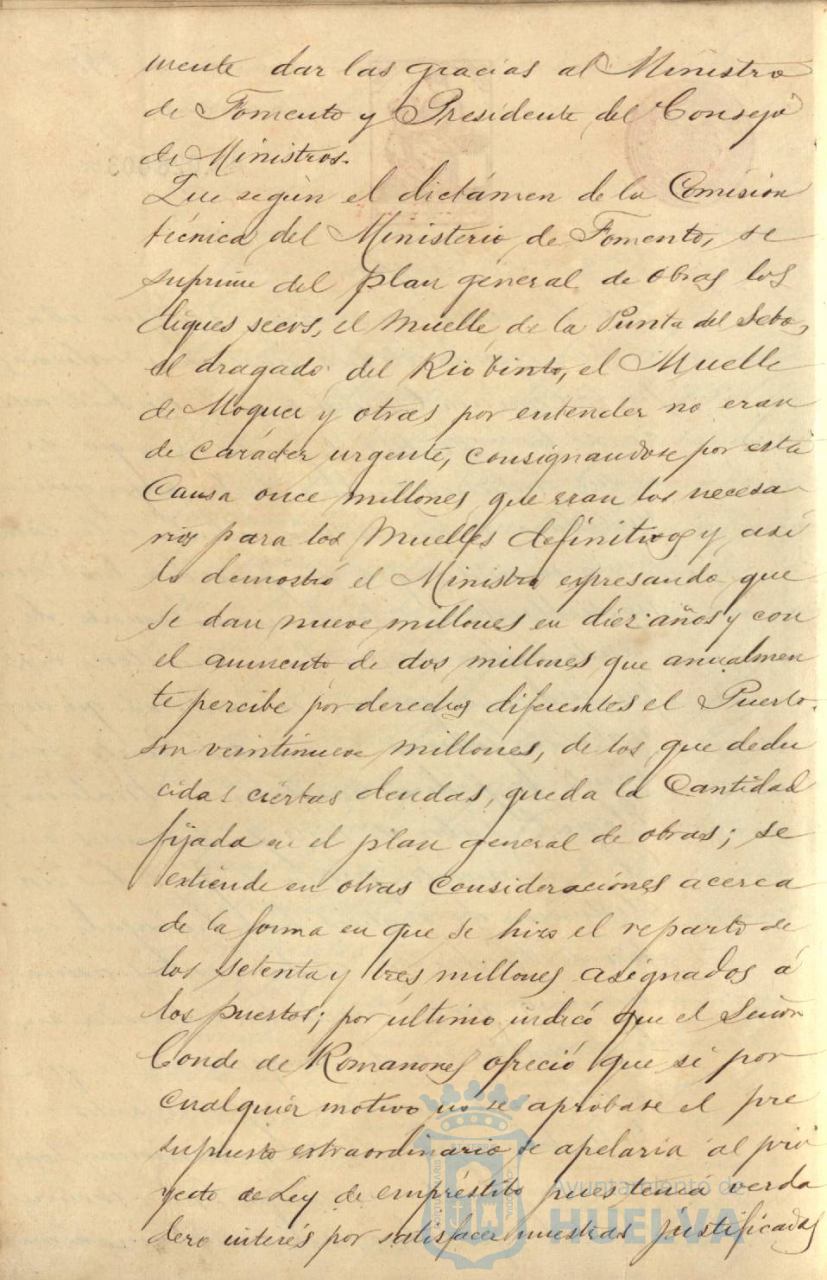 mente dar las gracias al Ministro
de Fomento y Presidente del Consejo
de Ministros.
Que según el dictámen de la Comisión
técnica del Ministerio de Fomento, se
suprime del plan general de obras los
diques secos, el Muelle de la Punta del Sebo,
el dragado del Rio Tinto, el Muelle
de Moguer y otras por entender no eran
de carácter urgente, consignandose por esta
Causa once millones que eran los necesa
rios para los Muelles definitivos y así
lo demostró el Ministro expresando que
se dan nueve millones en diez años y con
el aumento de dos millones que anualmen
te percibe por derechos diferentes el Puerto.
son veintinueve millones, de los que dedu
cidas ciertas deudas, queda la Cantidad
fijada en el plan general de obras; se
extiende en otras consideraciones acerca
de la forma en que se hizo el reparto de
los setenta y tres millones asignados á
los puertos; por último indicó que el Señor
Conde de Romanones ofreció que si por
cualquier motivo no se aprobase el pre
supuesto extraordinario se apelaria al pro
yecto de Ley de empréstito pues tenia verda
dero interés por satisfacer nuestras justificadas
Ayuntamiento de
HUELVA